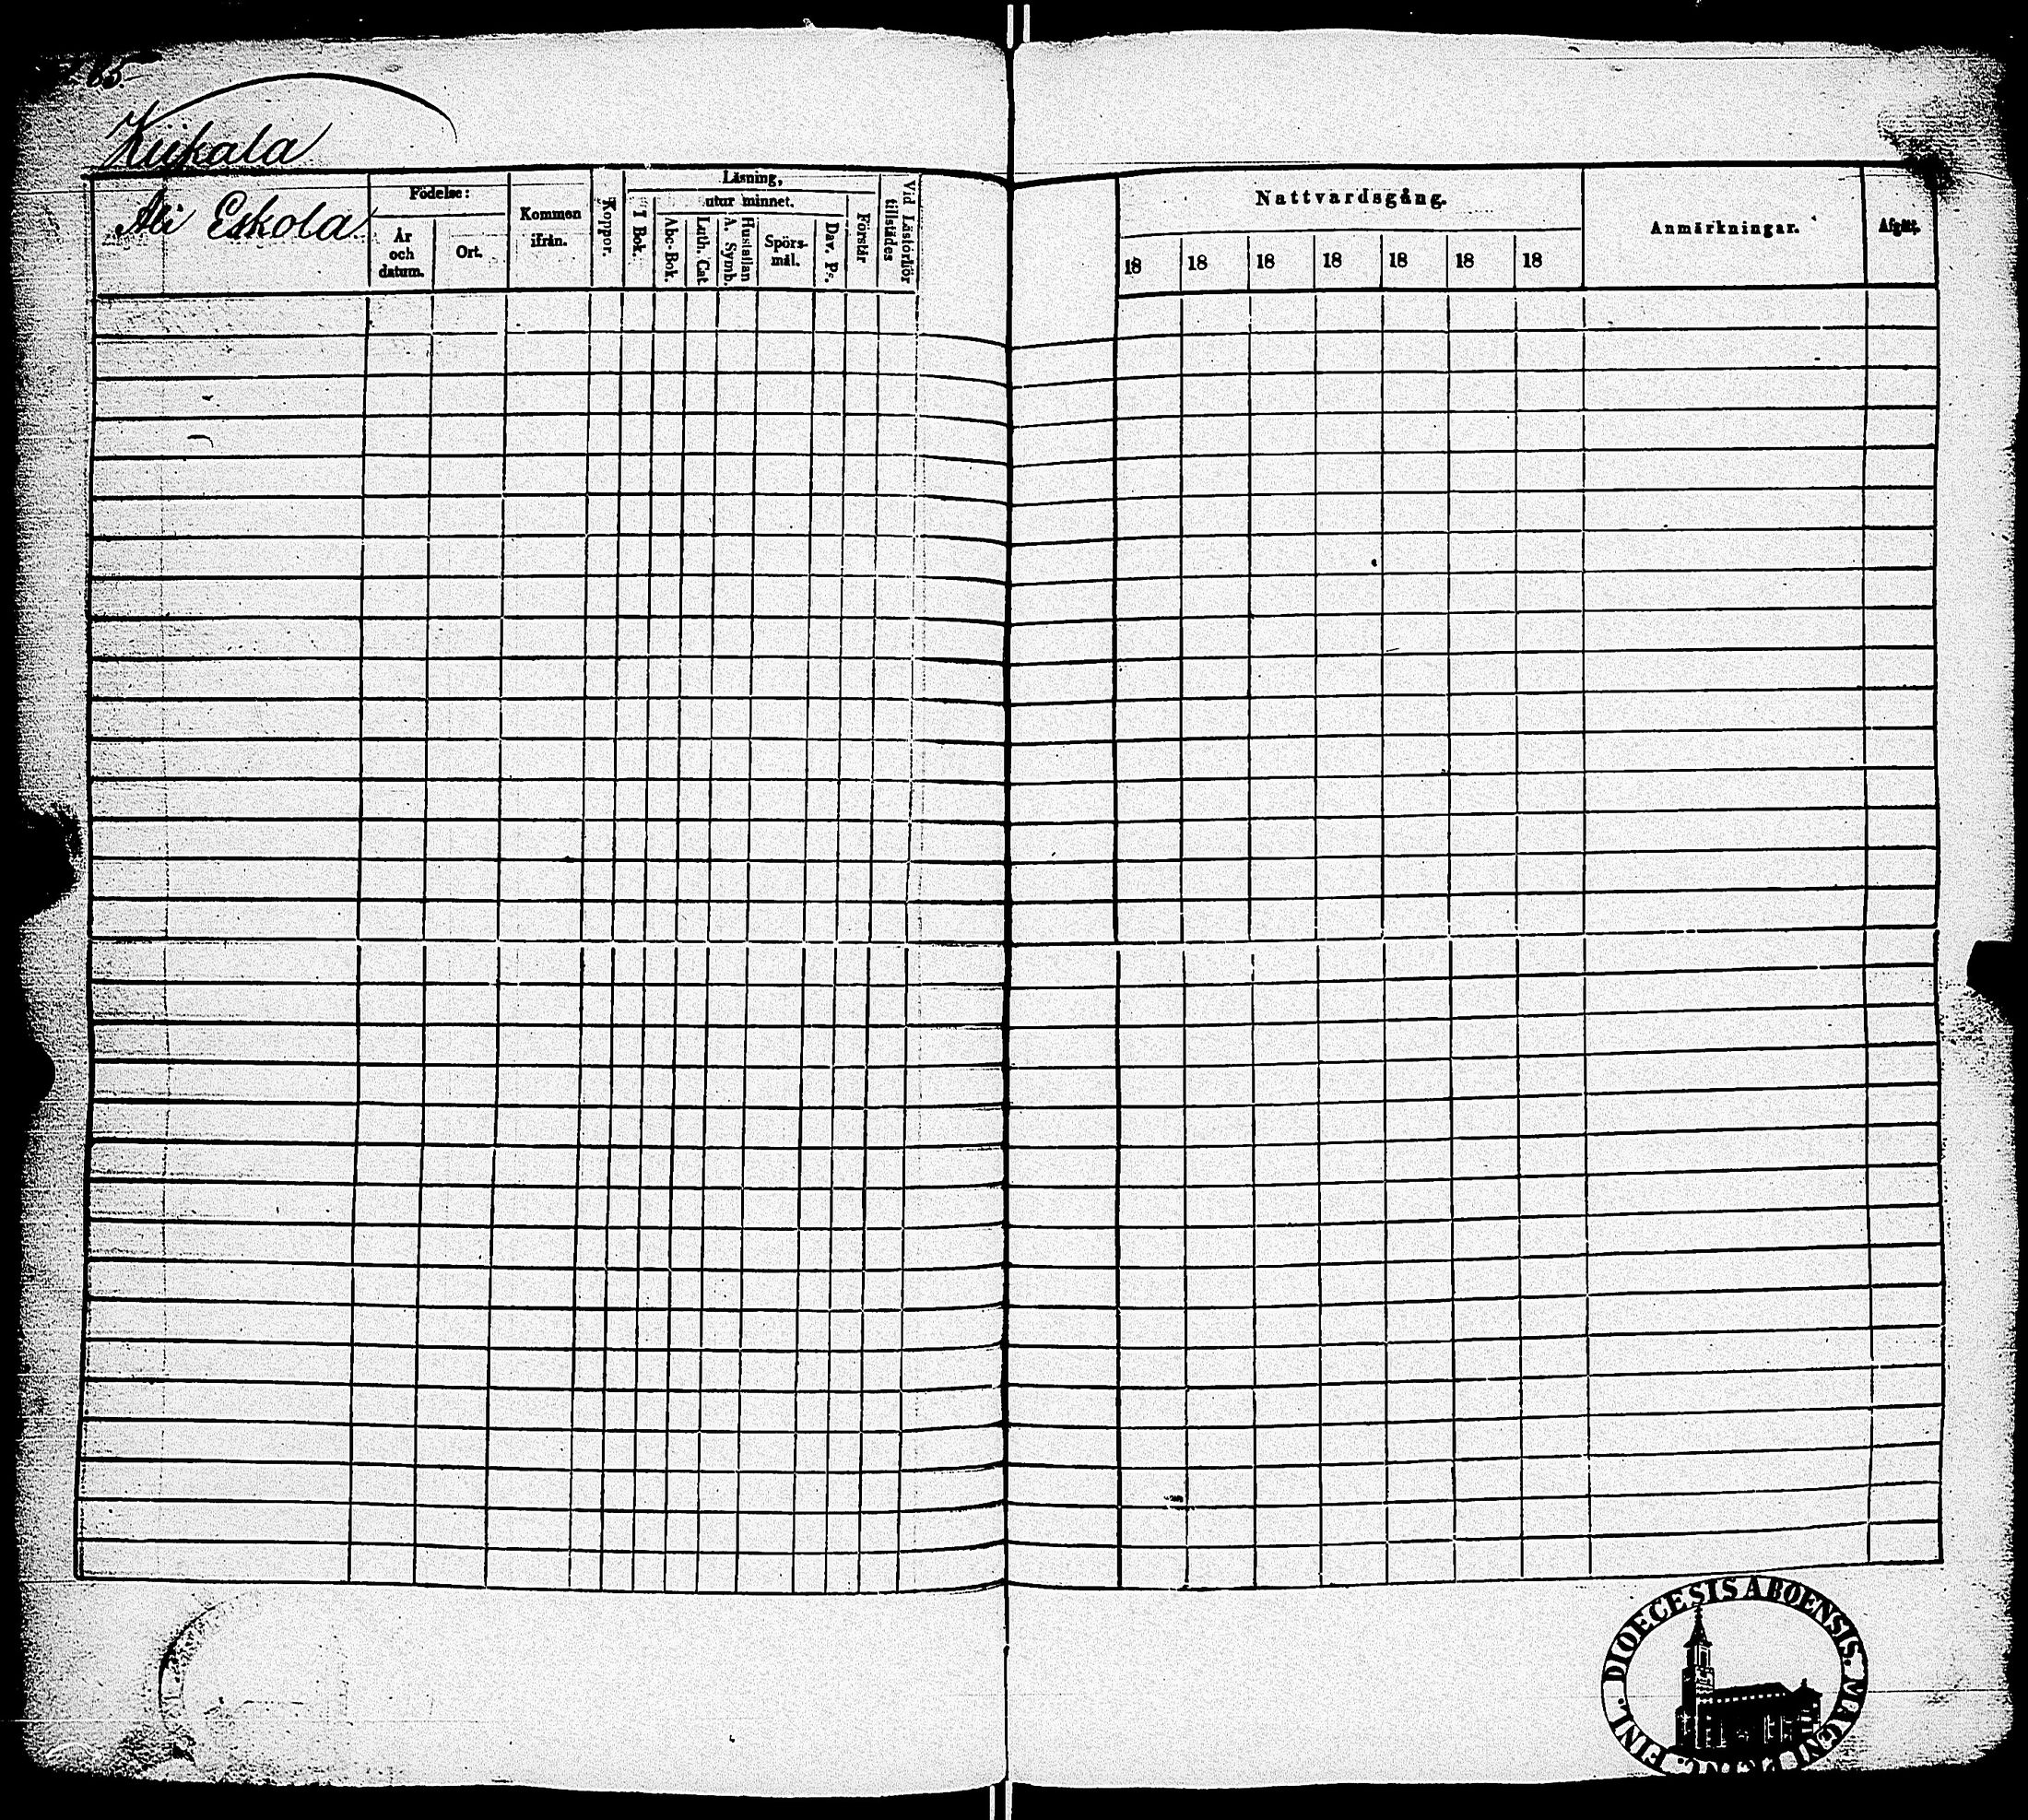 265.
Kiikala
Ali Eskola
Födelse:
År
och
datum.
Ort.
Kommen
ifrån.
Koppor.
Läsning,
I Bok.
utur minnet.
Abc-Bok.
Luth. Cat
A. Symb.
Hustaflan
Spörs-
mål.
Dav. Ps.
Förstår
Vid Läsförhör
tillstädes
Nattvardsgång.
18 18 18 18 18 18 18
Anmärkningar.
Afgått.
DIOECESIS ABOENSIS. MAGNI FINL.